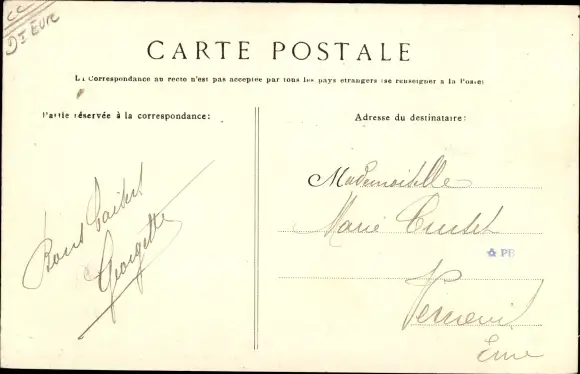 CC
DI EURE
CARTE POSTALE
La Correspondance au recto n'est pas acceptée par tous les pays étrangers (se renseigner à la Poste)
Partie réservée à la correspondance:
Adresse du destinataire:
Bons baisers
Georgette
Mademoiselle
Marie
PB
Verneuil
Eure